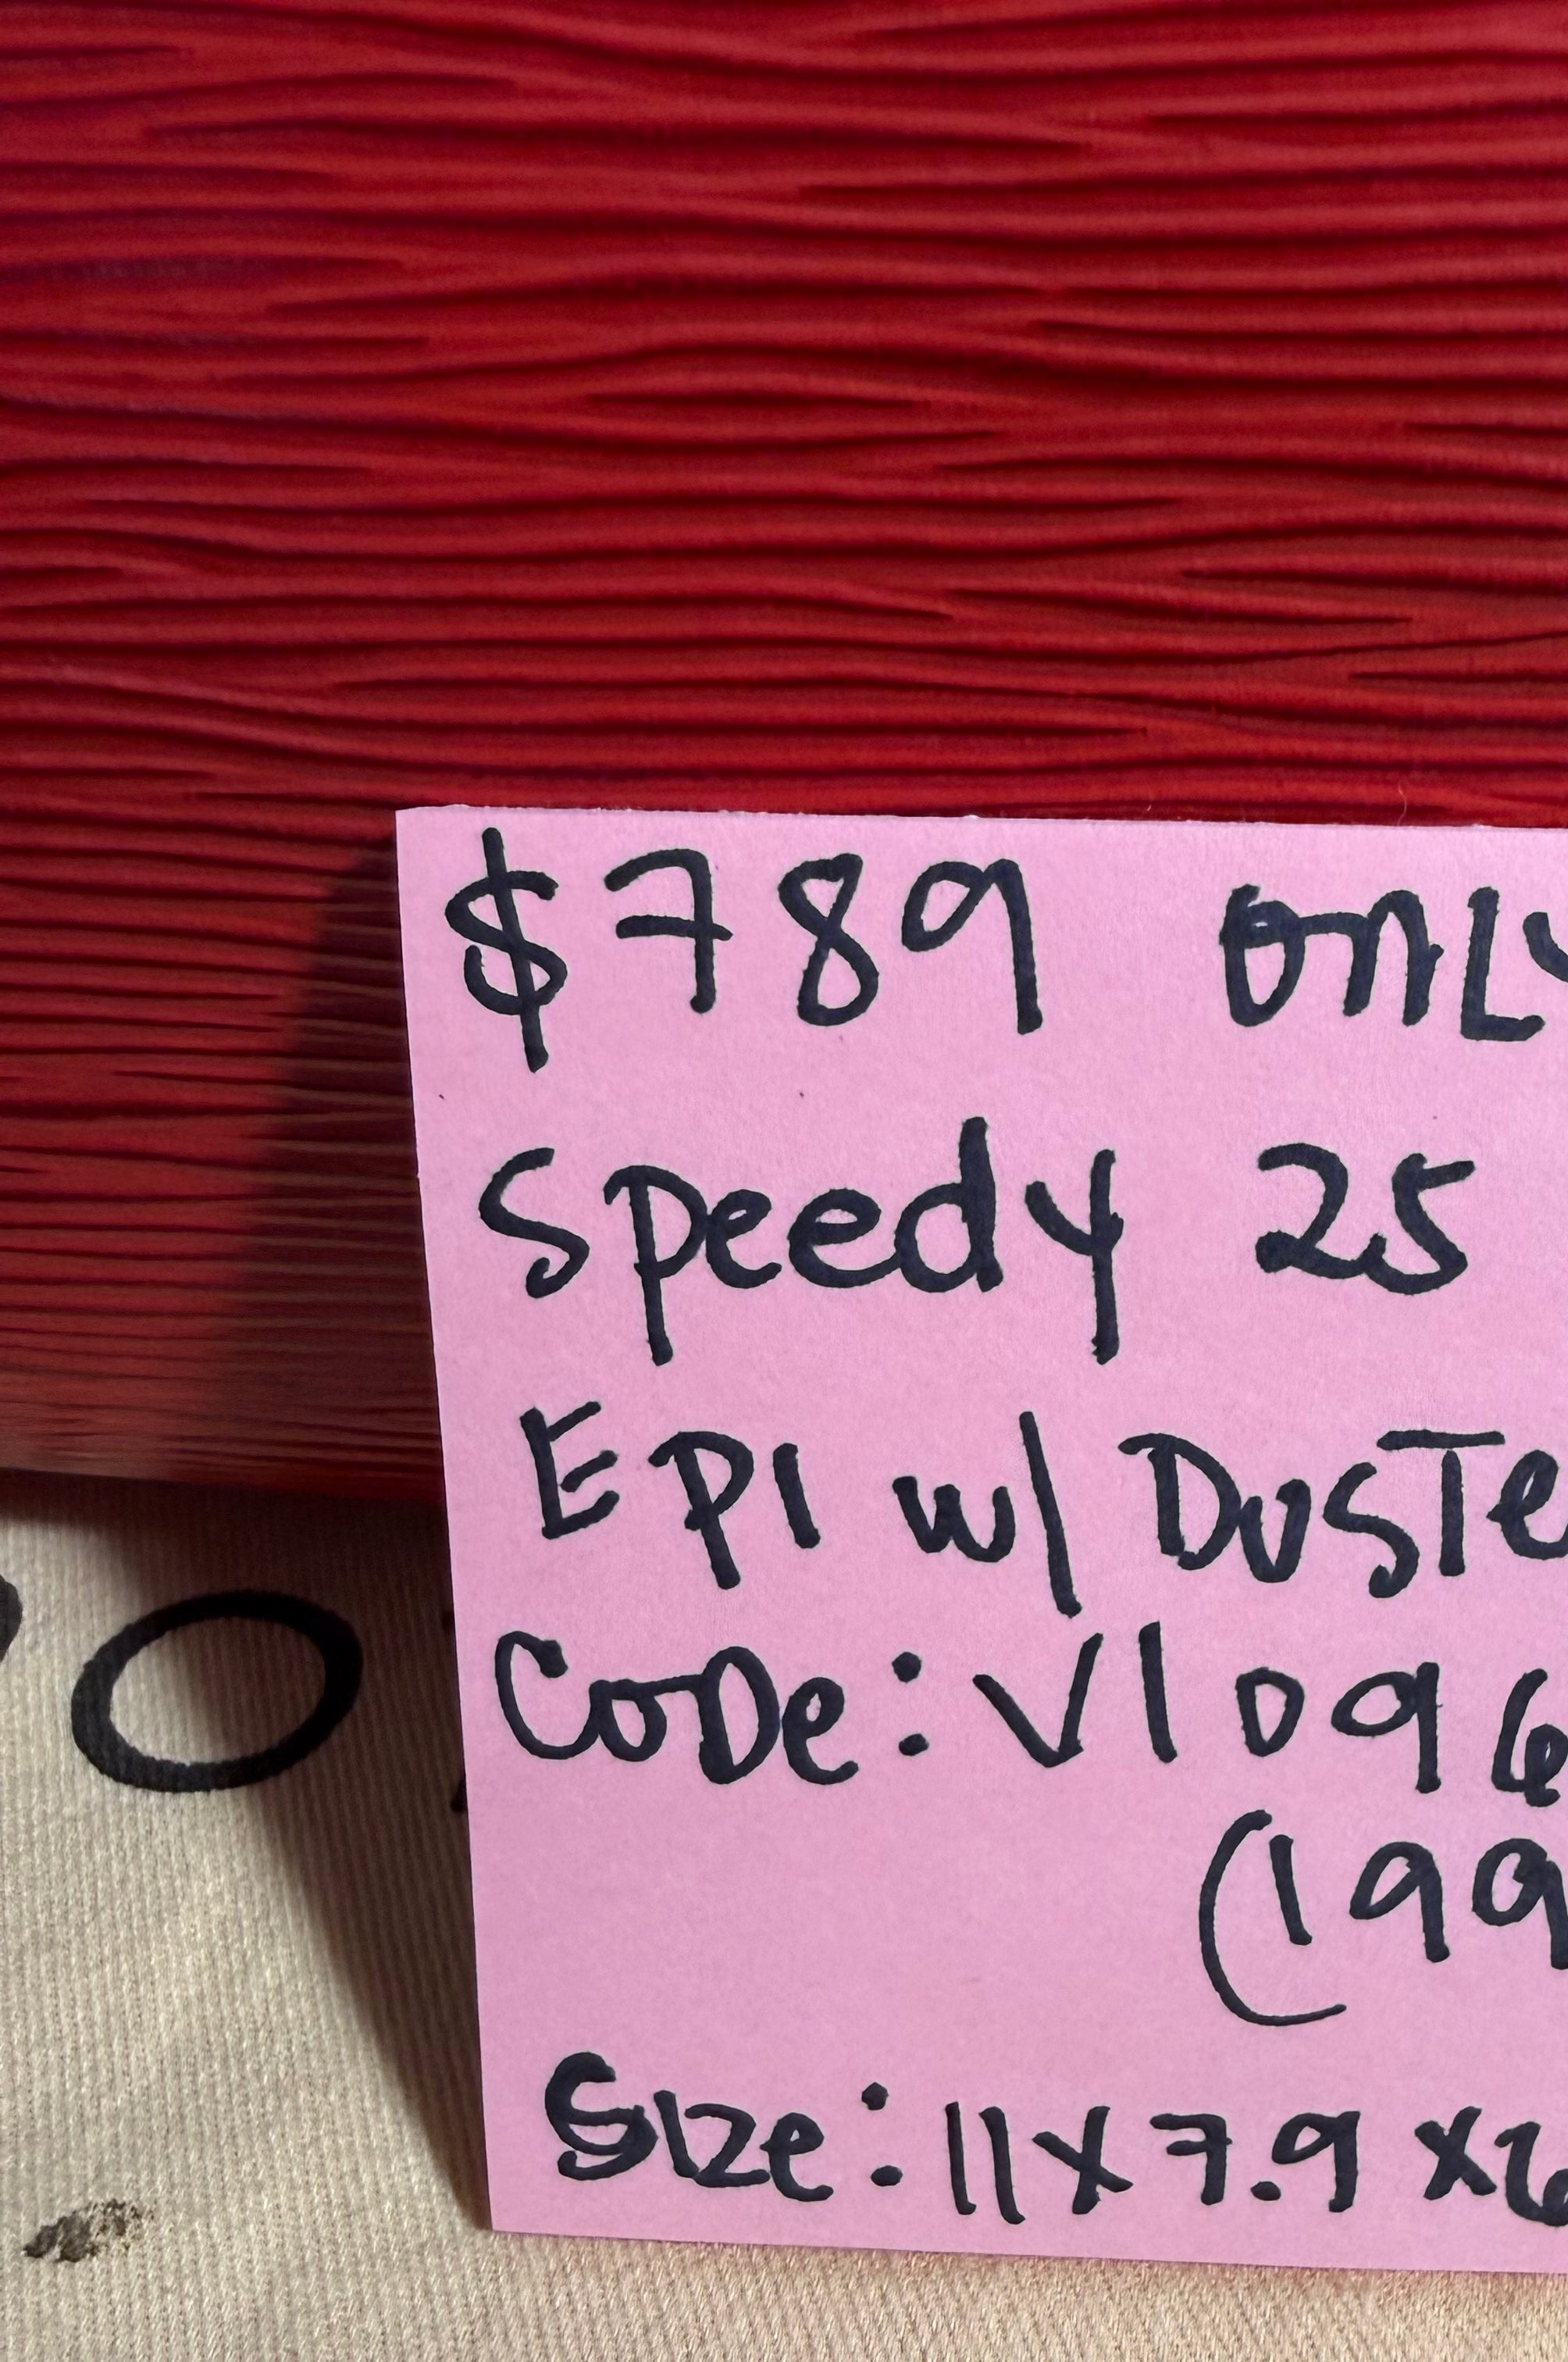 $789 ONLY
Speedy 25
EPI w/ Duste
Code: VI096
(199
Size: 11x7.9x6
O